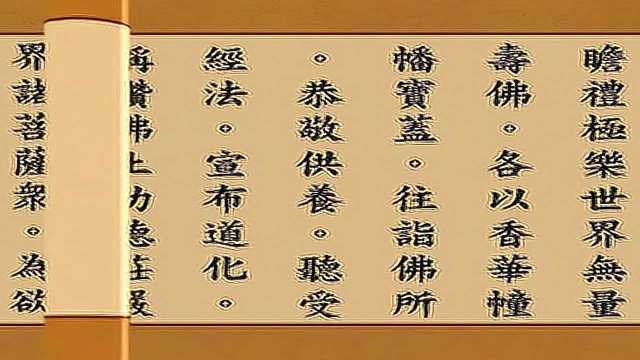 瞻禮極樂世界無量
壽佛。各以香華幢
幡寶蓋。往詣佛所
。恭敬供養。聽受
經法。宣布道化。
稱讚佛土功德莊嚴
界諸菩薩衆。為欲